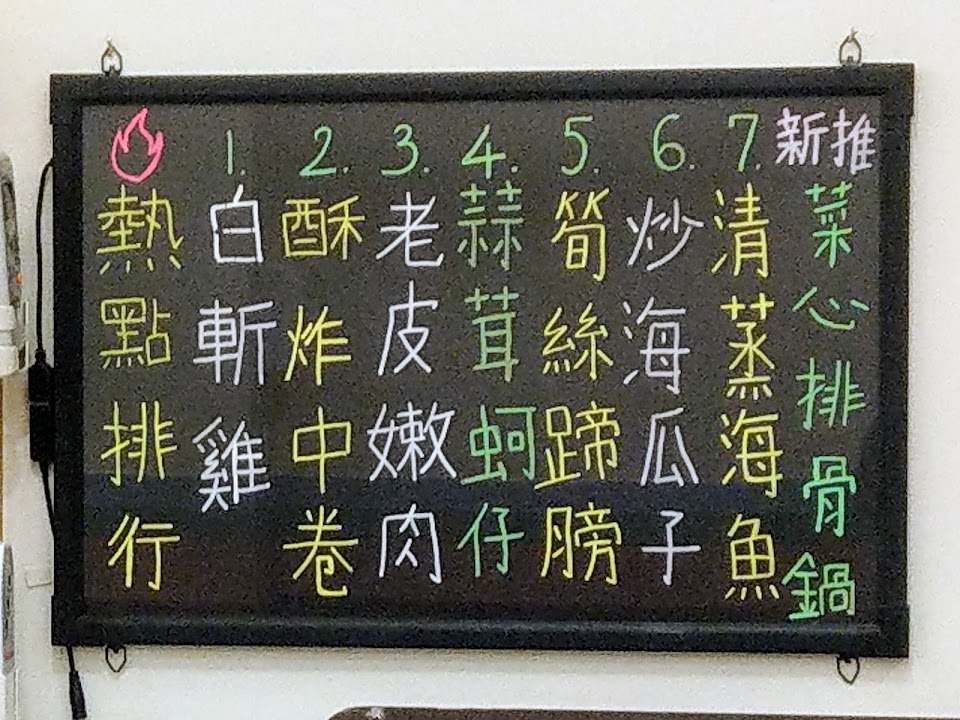 熱點排行
1. 白斬雞
2. 酥炸中卷
3. 老皮嫩肉
4. 蒜茸蚵仔
5. 筍絲蹄膀
6. 炒海瓜子
7. 清蒸海魚
新推 菜心排骨鍋